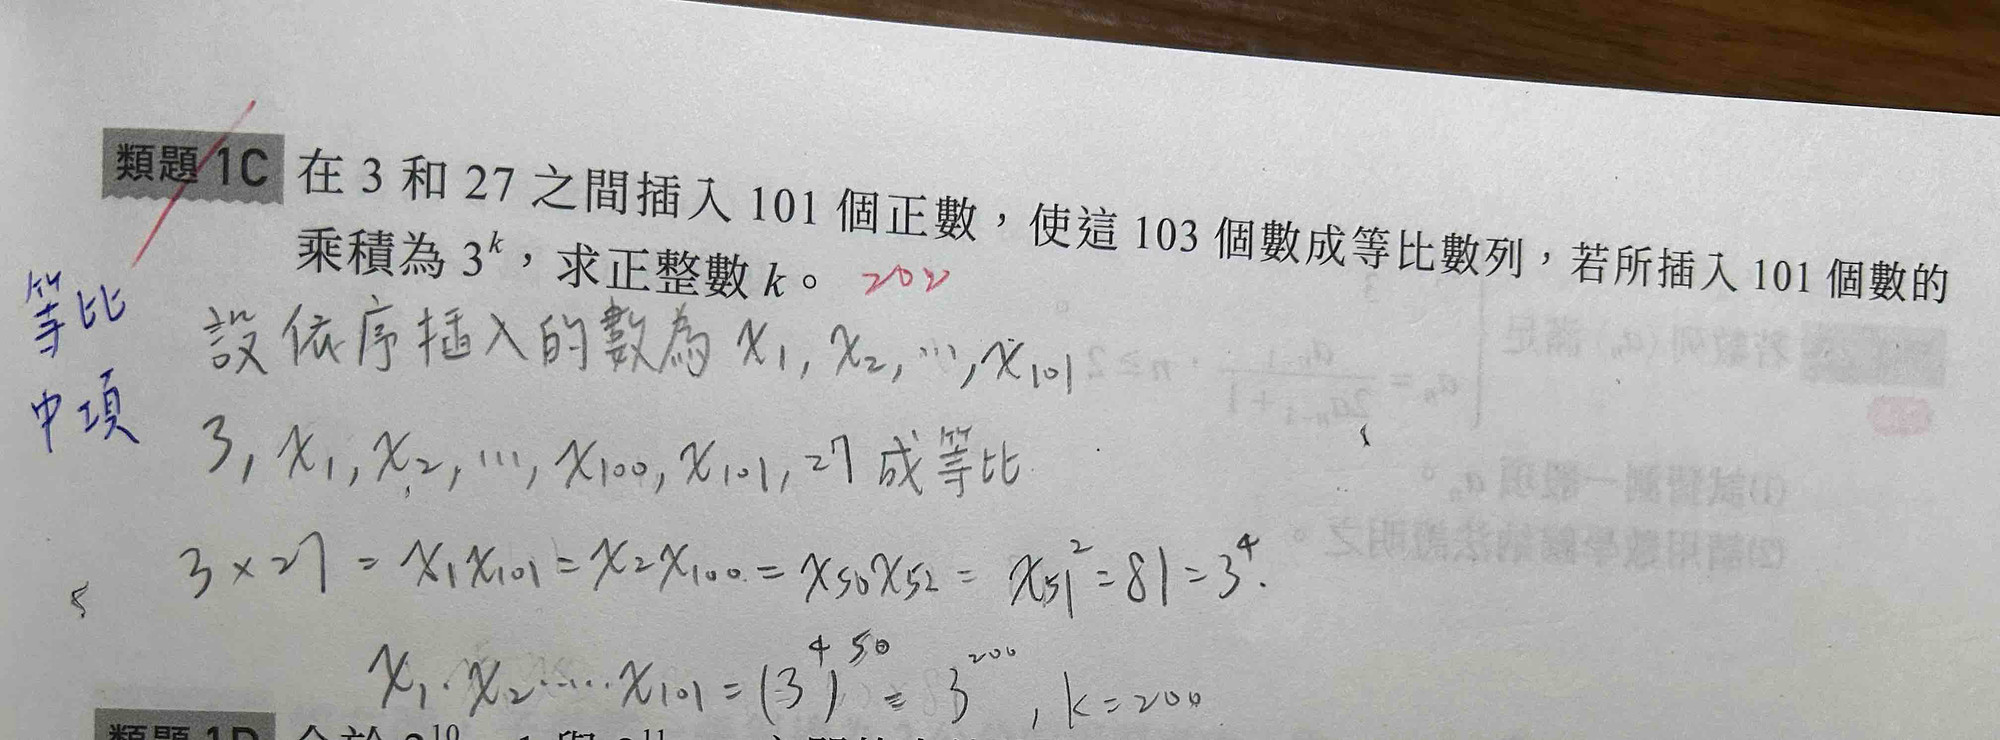 類題 1C 在 3 和 27 之間插入 101 個正數，使這 103 個數成等比數列，若所插入 101 個數的
乘積為 3^k，求正整數 k。 202
等比
中項
設依序插入的數為 x₁, x₂, ..., x₁₀₁
3, x₁, x₂, ..., x₁₀₀, x₁₀₁, 27 成等比
3×27 = x₁x₁₀₁ = x₂x₁₀₀ = x₅₀x₅₂ = x₅₁² = 81 = 3⁴.
x₁·x₂·····x₁₀₁ = (3⁴)⁵⁰ = 3²⁰⁰, k=200
類題 1D